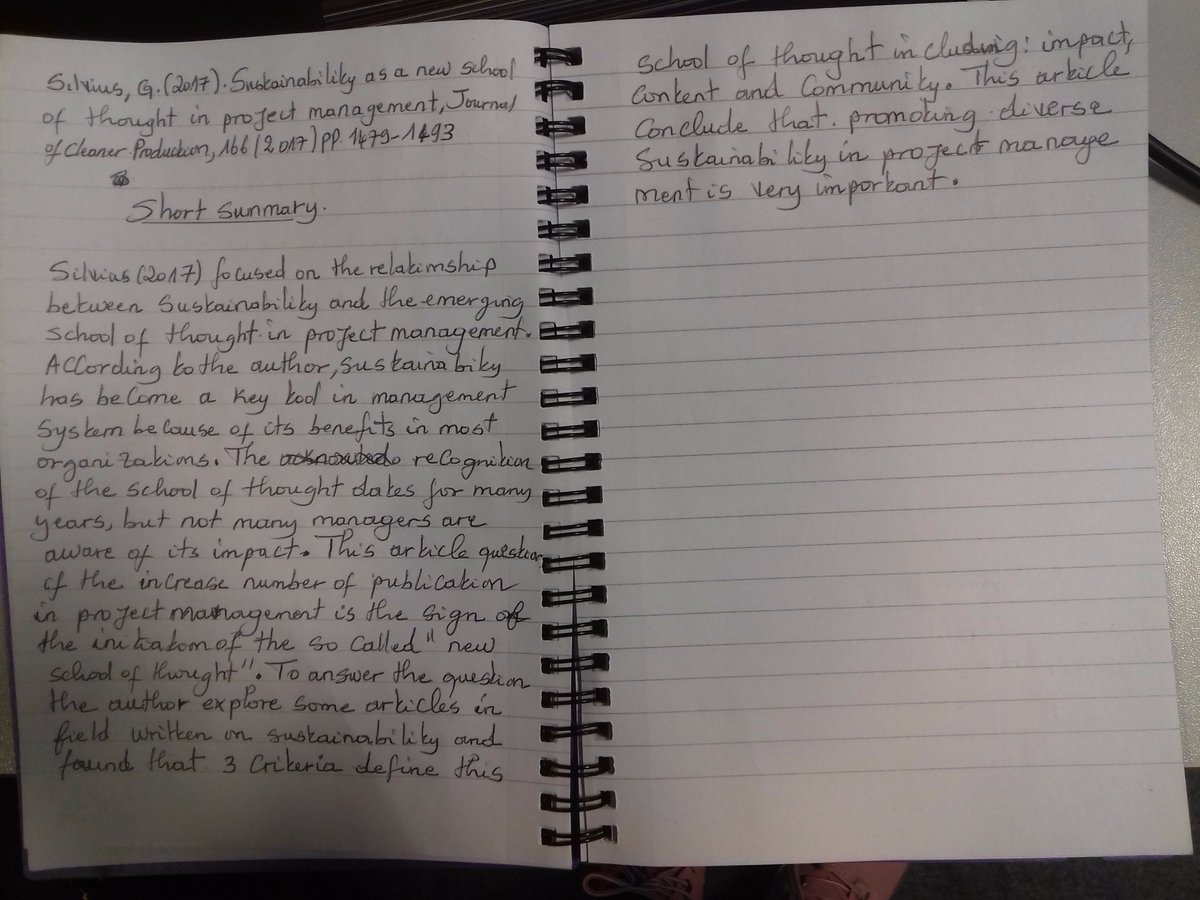 Silvius, G. (2017). Sustainability as a new school
of thought in project management, Journal
of Cleaner Production, 166 (2017) pp. 1479-1493
Short summary.
Silvius (2017) focused on the relationship
between sustainability and the emerging
school of thought in project management.
According to the author, sustainability
has become a key tool in management
system because of its benefits in most
organizations. The recognition
of the school of thought dates for many
years, but not many managers are
aware of its impact. This article question
of the increase number of publication
in project management is the sign of
the initiation of the so called "new
school of thought". To answer the question
the author explore some articles in
field written on sustainability and
found that 3 criteria define this
school of thought including: impact,
content and community. This article
conclude that. promoting diverse
sustainability in project manage
ment is very important.